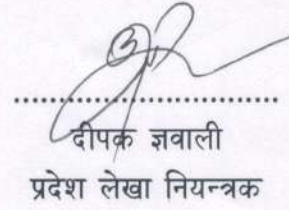 ................................
दीपक ज्ञवाली
प्रदेश लेखा नियन्त्रक